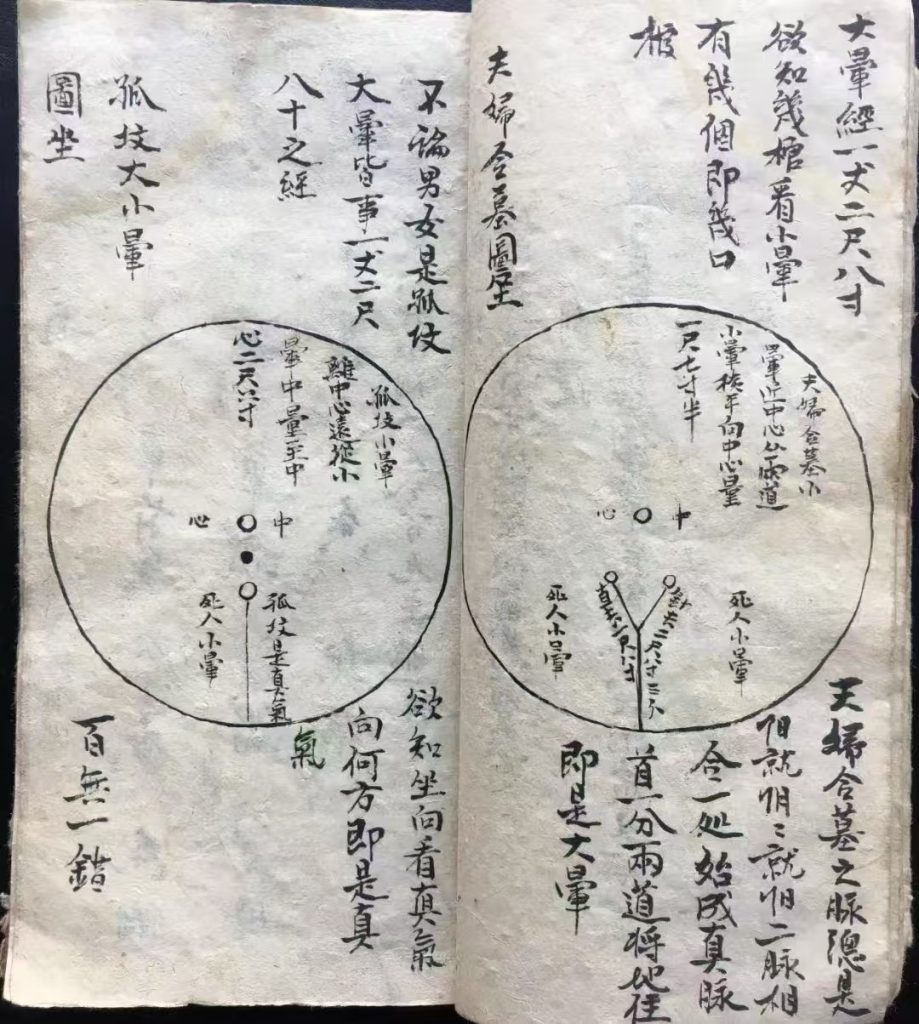 大暈經一丈二尺八寸
欲知幾棺看小暈
有幾個即幾口
棺
夫婦合墓圖坐
夫婦合墓小
暈近中心分兩道
小暈核平向中心量
一尺七寸半
中
心
死人小暈
死人小暈
夫婦合墓之脉隱是
陽就陰陰就陽二脉相
合一处始成真脉
首一分兩道将他住
即是大暈
不論男女是孤坟
大暈皆事一丈二尺
八十之經
孤坟大小暈
圖坐
孤坟小暈
離中心遠從小
暈中量至中
心二尺六寸
中
心
孤坟是真氣
死人小暈
欲知坐向看真氣
向何方即是真
氣
百無一錯